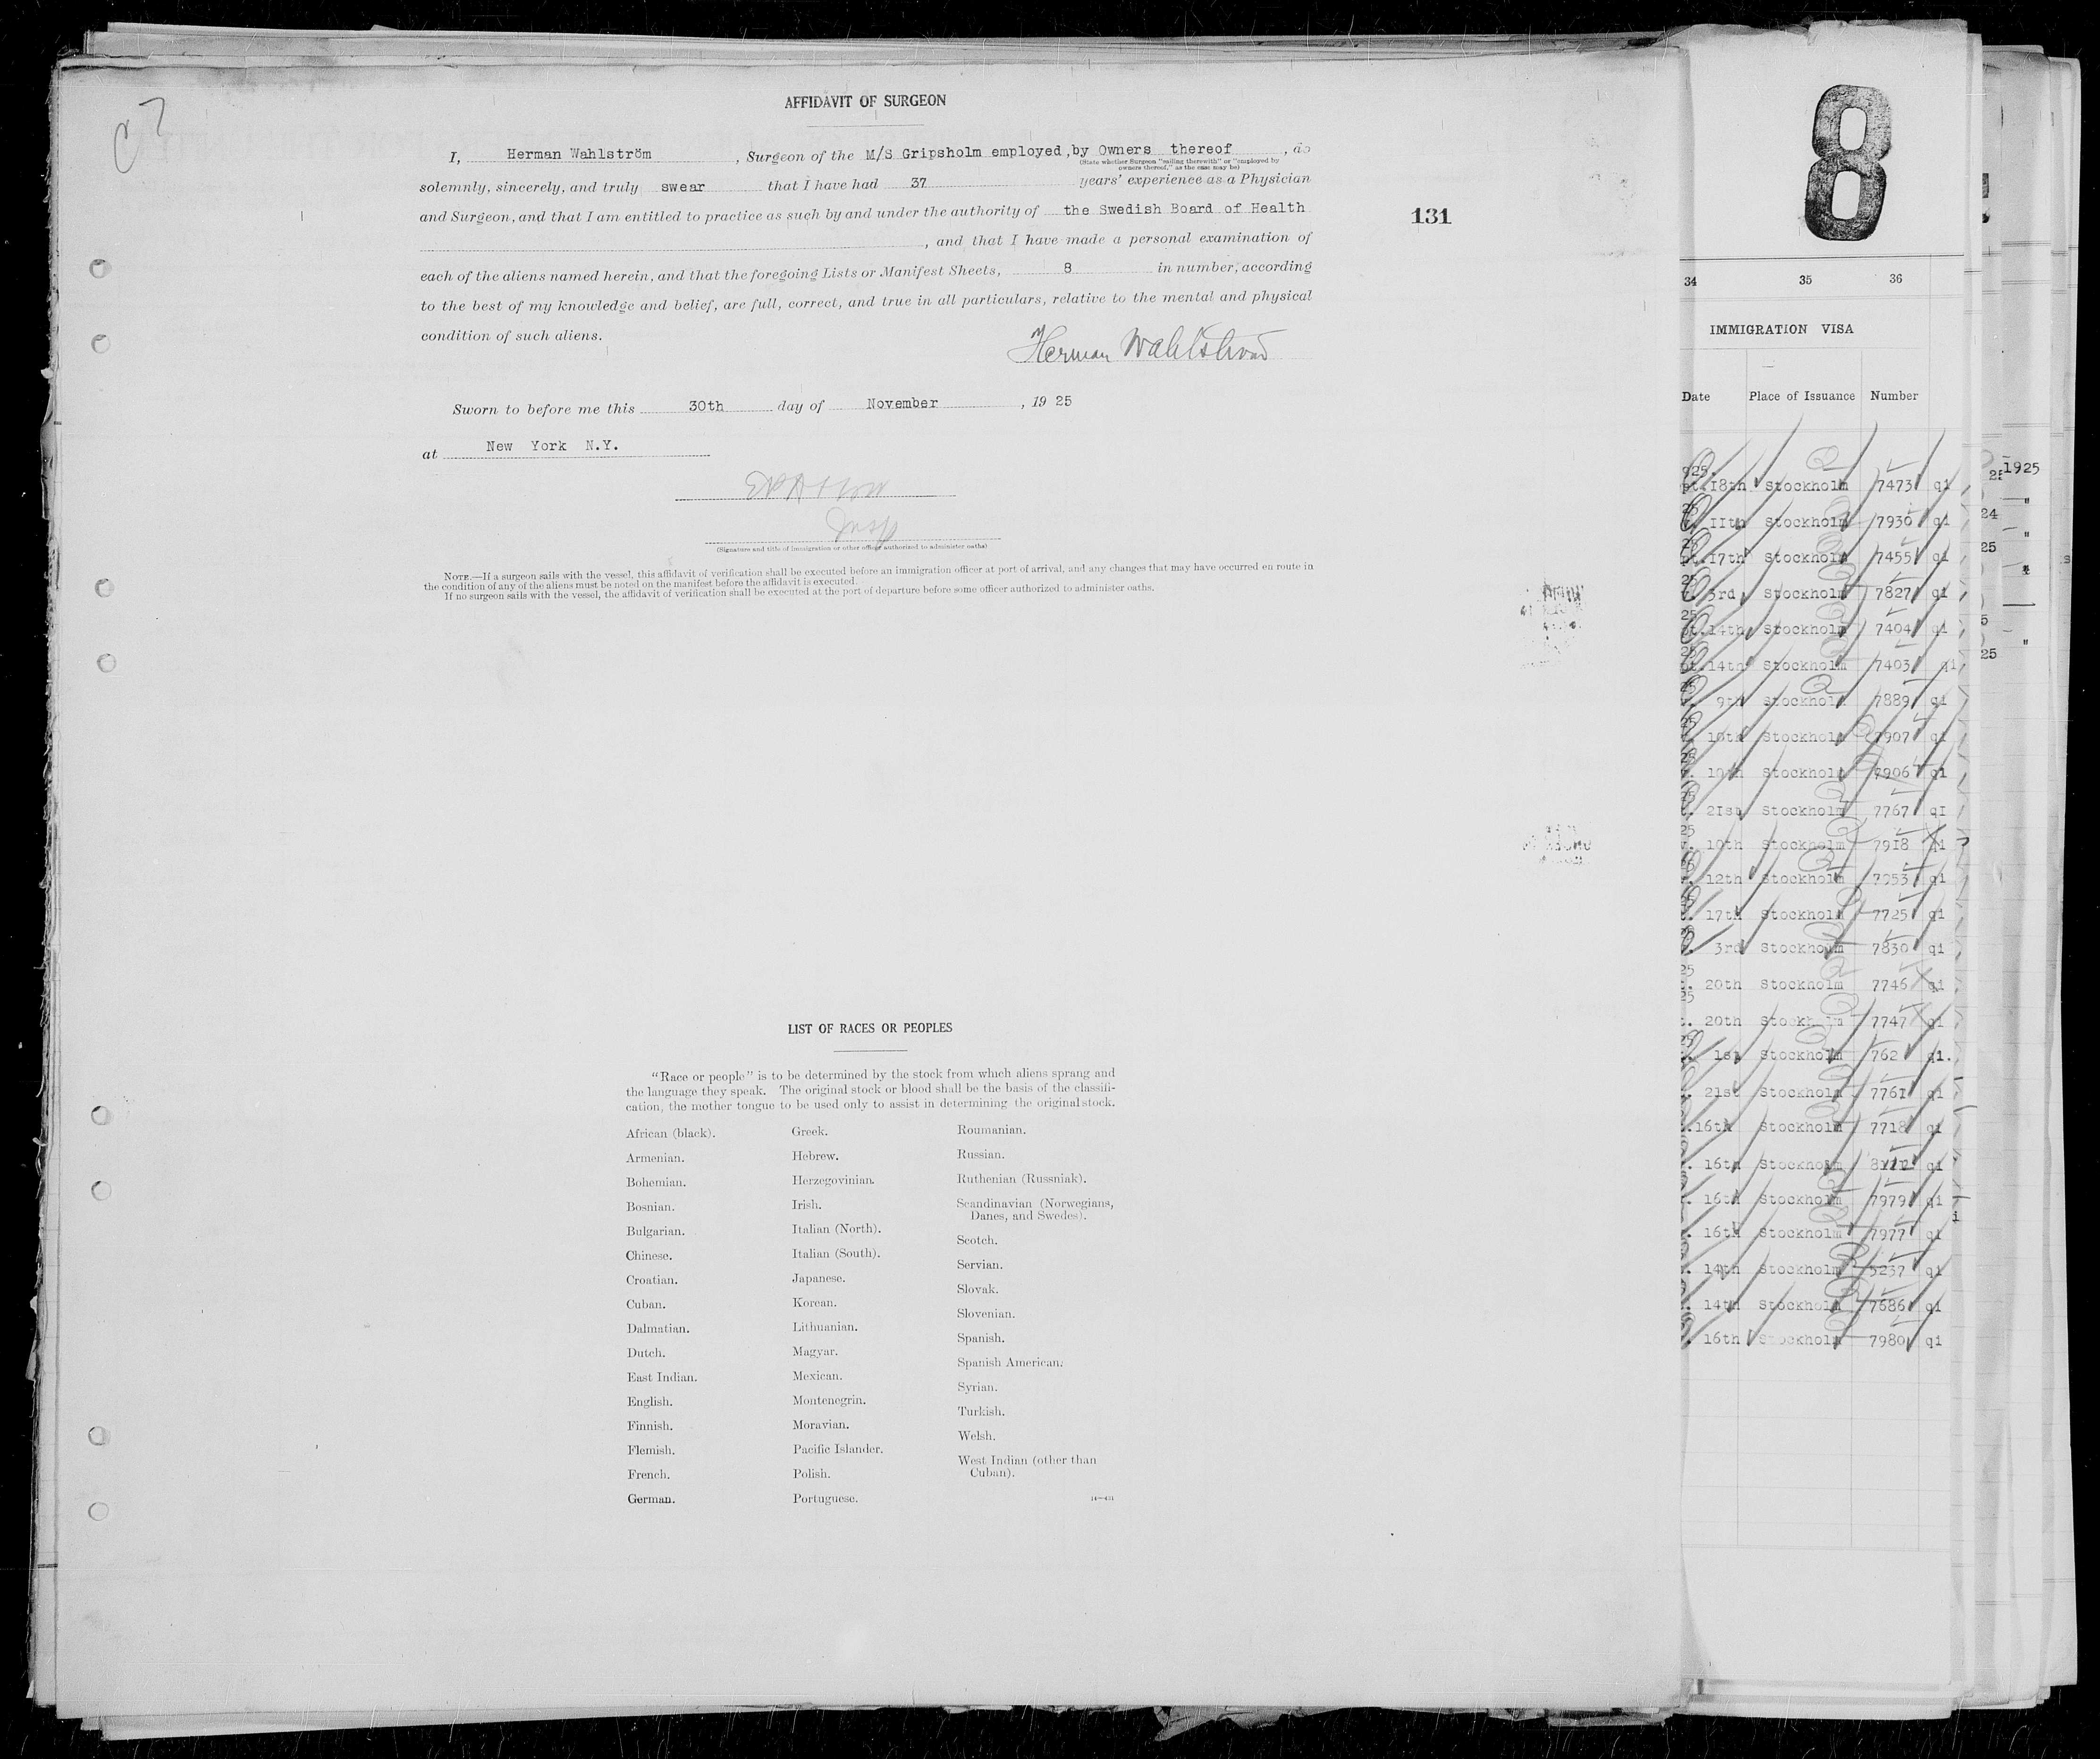 AFFIDAVIT OF SURGEON
I, Herman Wahlström, Surgeon of the M/S Gripsholm employed, by Owners thereof, do
(State whether Surgeon "sailing therewith" or "employed by
owners thereof," as the case may be)
solemnly, sincerely, and truly swear that I have had 37 years' experience as a Physician
and Surgeon, and that I am entitled to practice as such by and under the authority of the Swedish Board of Health
, and that I have made a personal examination of
each of the aliens named herein, and that the foregoing Lists or Manifest Sheets, 8 in number, according
to the best of my knowledge and belief, are full, correct, and true in all particulars, relative to the mental and physical
condition of such aliens.
Herman Wahlström
Sworn to before me this 30th day of November, 1925
at New York N.Y.
Insp
(Signature and title of immigration or other officer authorized to administer oaths)
NOTE.—If a surgeon sails with the vessel, this affidavit of verification shall be executed before an immigration officer at port of arrival, and any changes that may have occurred en route in
the condition of any of the aliens must be noted on the manifest before the affidavit is executed.
If no surgeon sails with the vessel, the affidavit of verification shall be executed at the port of departure before some officer authorized to administer oaths.
131
LIST OF RACES OR PEOPLES
"Race or people" is to be determined by the stock from which aliens sprang and
the language they speak. The original stock or blood shall be the basis of the classifi-
cation, the mother tongue to be used only to assist in determining the original stock.
African (black).
Armenian.
Bohemian.
Bosnian.
Bulgarian.
Chinese.
Croatian.
Cuban.
Dalmatian.
Dutch.
East Indian.
English.
Finnish.
Flemish.
French.
German.
Greek.
Hebrew.
Herzegovinian.
Irish.
Italian (North).
Italian (South).
Japanese.
Korean.
Lithuanian.
Magyar.
Mexican.
Montenegrin.
Moravian.
Pacific Islander.
Polish.
Portuguese.
Roumanian.
Russian.
Ruthenian (Russniak).
Scandinavian (Norwegians,
Danes, and Swedes).
Scotch.
Servian.
Slovak.
Slovenian.
Spanish.
Spanish American.
Syrian.
Turkish.
Welsh.
West Indian (other than
Cuban).
14—431
8
34 35 36
IMMIGRATION VISA
Date Place of Issuance Number
18th Stockholm 7473 qi
11th Stockholm 7930 qi
17th Stockholm 7455 qi
3rd Stockholm 7827 qi
14th Stockholm 7404 qi
14th Stockholm 7403 qi
9th Stockholm 7889 qi
10th Stockholm 7907 qi
10th Stockholm 7906 qi
21st Stockholm 7767 qI
10th Stockholm 7918 qi
12th Stockholm 7953 qi
17th Stockholm 7725 qi
3rd Stockholm 7830 qi
20th Stockholm 7746 qi
20th Stockholm 7747 qi
1st Stockholm 762 qi.
21st Stockholm 7761 qi
16th Stockholm 7718 qi
16th Stockholm qi
16th Stockholm 7979 qi
16th Stockholm 7977 qi
14th Stockholm 5237 qi
14th Stockholm 7686 qi
16th Stockholm 7980 qi
1925